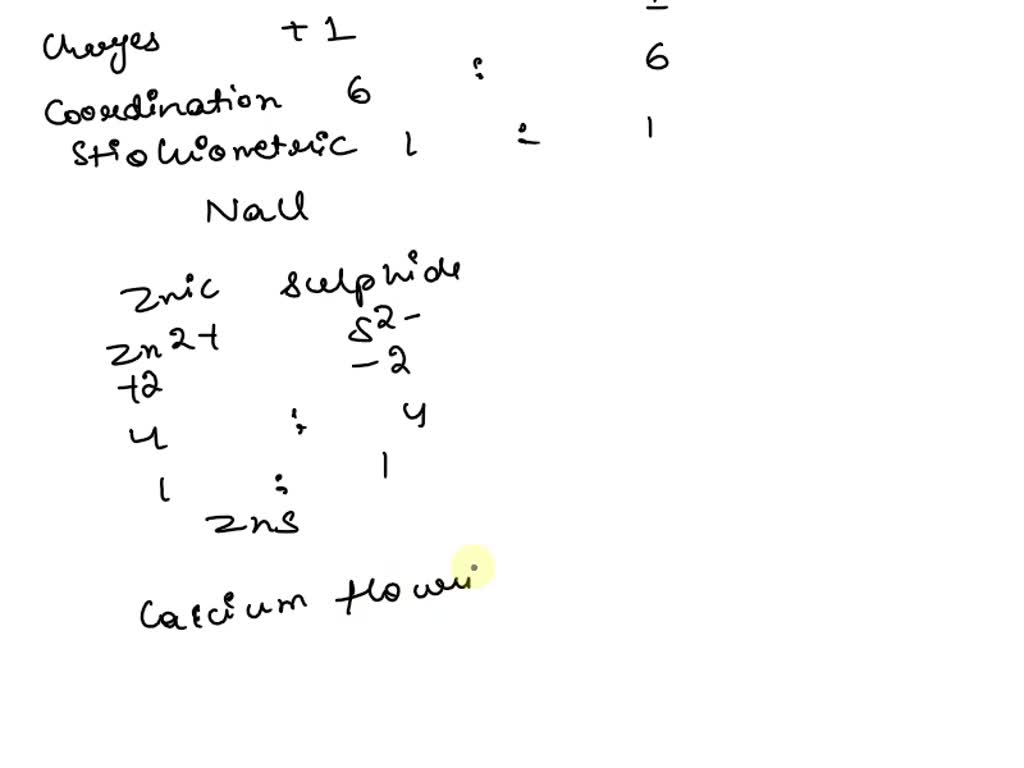 Charges +1
Coordination 6 : 6
Stiochiometric 1 : 1
NaCl
Znic sulphide
Zn2+ S2-
+2 -2
4 : 4
1 : 1
ZnS
Calcium flouri